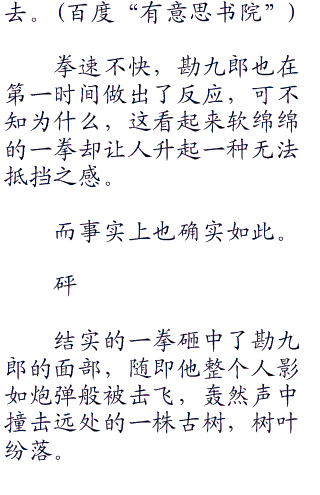 去。(百度“有意思书院”)
拳速不快，勘九郎也在
第一时间做出了反应，可不
知为什么，这看起来软绵绵
的一拳却让人升起一种无法
抵挡之感。
而事实上也确实如此。
砰
结实的一拳砸中了勘九
郎的面部，随即他整个人影
如炮弹般被击飞，轰然声中
撞击远处的一株古树，树叶
纷落。